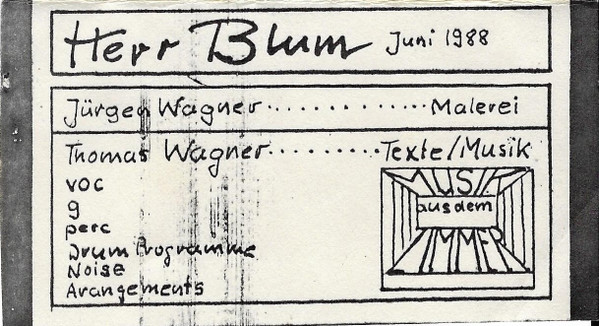 Herr Blum Juni 1988
Jürgen Wagner ............ Malerei
Thomas Wagner .......... Texte/Musik
voc
g
perc
Drum Programme
Noise
Arangements
MUSIK
aus dem
ZIMMER